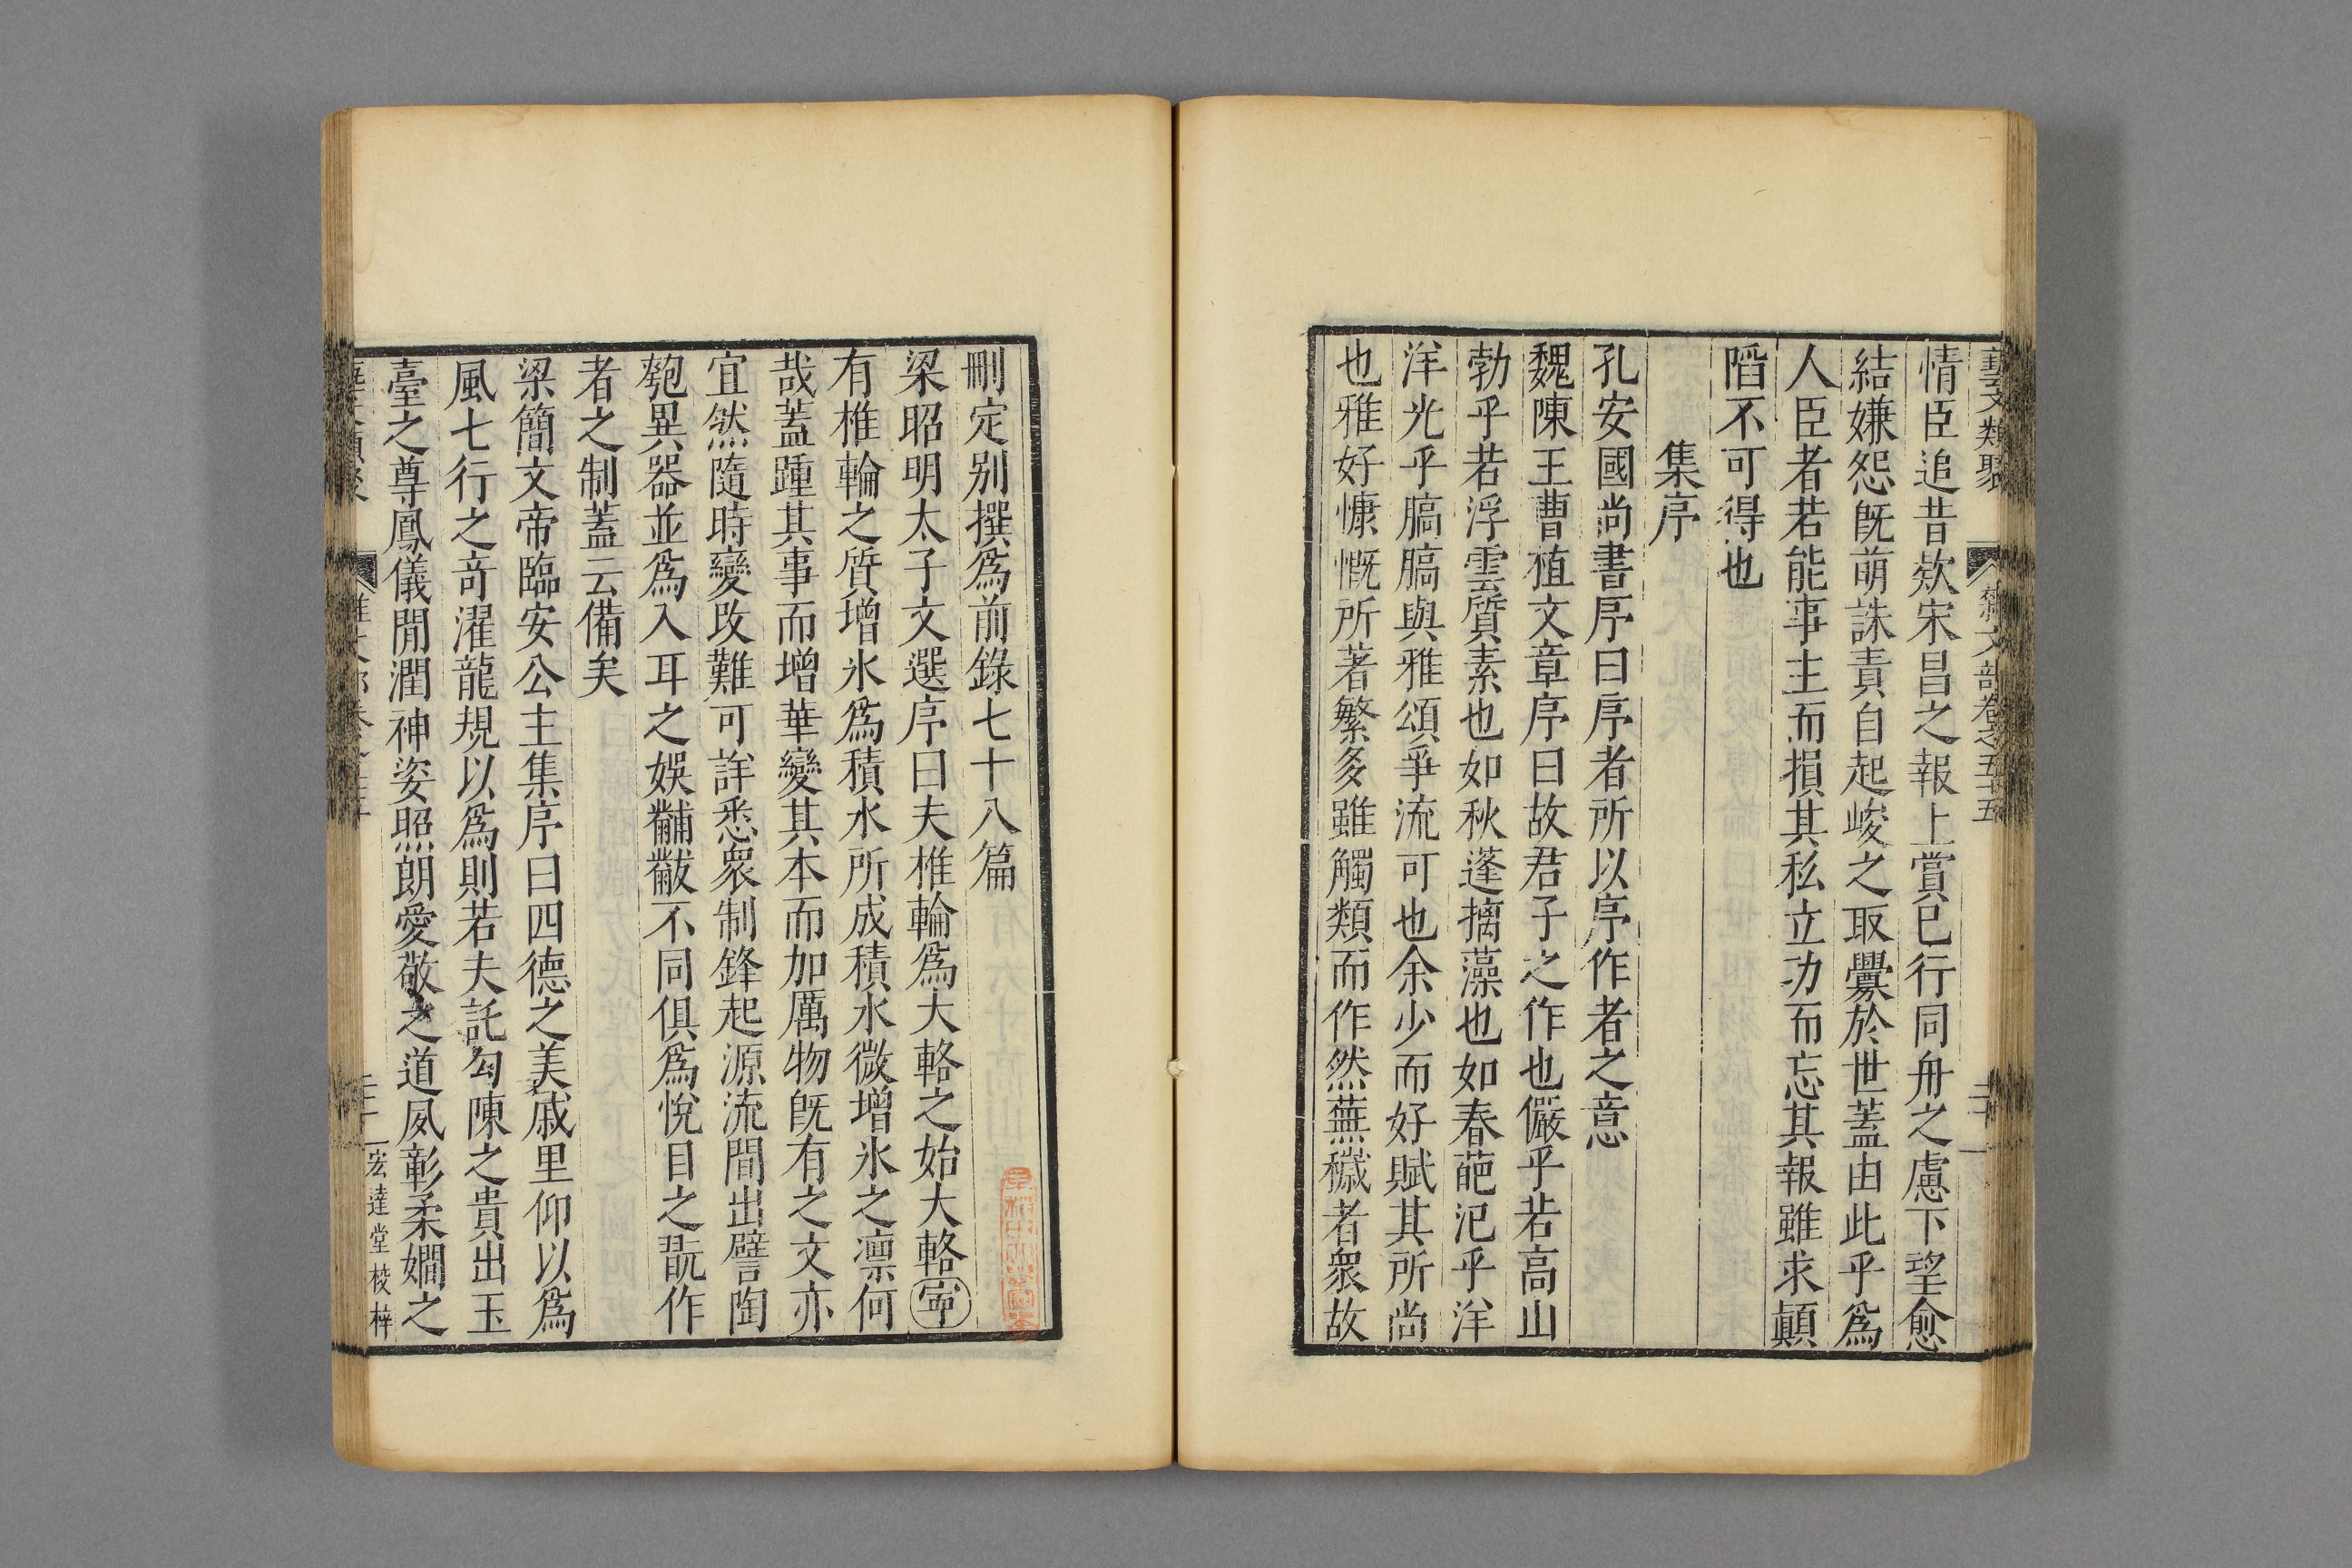 藝文類聚 雜文部卷之五十五
情臣追昔欵宋昌之報上賞已行同舟之慮下望愈
結嫌怨旣萌誅責自起峻之取釁於世蓋由此乎爲
人臣者若能事主而損其私立功而忘其報雖求顛
陷不可得也
集序
孔安國尚書序曰序者所以序作者之意
魏陳王曹植文章序曰故君子之作也儼乎若高山
勃乎若浮雲質素也如秋蓬摛藻也如春葩氾乎洋
洋光乎膈膈與雅頌爭流可也余少而好賦其所尚
也雅好慷慨所著繁多雖觸類而作然蕪穢者衆故
刪定別撰爲前錄七十八篇
梁昭明太子文選序曰夫椎輪爲大輅之始大輅寧
有椎輪之質增氷爲積水所成積水微增氷之凛何
哉蓋踵其事而增華變其本而加厲物旣有之文亦
宜然隨時變改難可詳悉衆制鋒起源流間出譬陶
匏異器並爲入耳之娛黼黻不同俱爲悅目之翫作
者之制蓋云備矣
梁簡文帝臨安公主集序曰四德之美戚里仰以爲
風七行之奇濯龍規以爲則若夫託勾陳之貴出玉
臺之尊鳳儀閒潤神姿照朗愛敬之道夙彰柔嫺之
宏達堂校梓